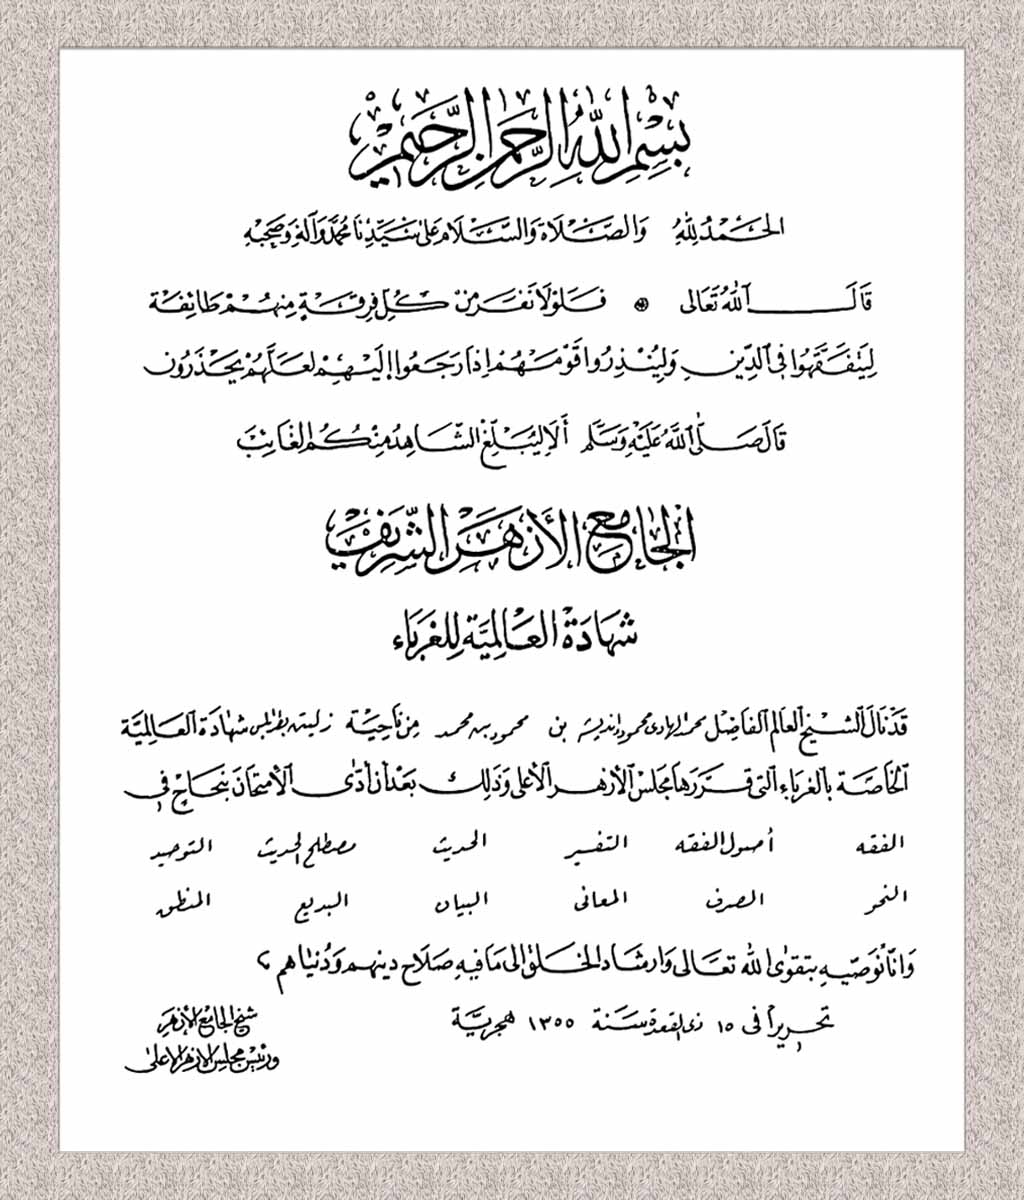 بِسْمِ اللهِ الرَّحْمنِ الرَّحِيمِ
الحَمْدُ لِلّهِ وَالصَّلَاة وَالسَّلَام عَلىٰ سَيِّدِنَا مُحَمَّد وَآلهِ وَصَحبِهِ
قَالَ اللهُ تَعَالى ❊ فَلَوْلَا نَفَرَ مِنْ كُلِّ فِرقَةٍ مِنهُمْ طَائِفَة
لِيَتَفَقَّهُوا فِي الدِّينِ وَلِيُنْذِرُوا قَوْمَهُمْ إِذَا رَجَعُوا إِلَيْهِمْ لعَلَّهُمْ يَحْذَرُون
قَالَ صَلَّى اللهُ عَلَيْهِ وَسَلَّم أَلَا لِيُبَلِّغ الشَّاهِدُ مِنْكُمُ الغَائِبَ
الجَامِعُ الأَزهَرُ الشَّرِيف
شَهَادَةُ العَالِمِيَّة لِلغُرَبَاء
قَدْ نَالَ الشَّيْخ العَالم الفَاضِل محمد الهادى محمود انديشه بن محمود بن محمد مِن نَاحِيَة زليتن بطرابلس شهَادَة العَالِميَّة
الخَاصَّة بالغربَاء التى قَرَّرَهَا مجلس الأزهر الأعلى وَذلِك بَعْدَ أن أدَّى الأمتحَانَ بنجَاحٍ في
الفقه أصول الفقه التفسير الحديث مصطلح الحديث التوحيد
النحو الصرف المعانى البيان البديع المنطق
وَانّا نوَصّيهِ بتقوَى الله تعَالى وَارشَاد الخَلق إلى مَا فيهِ صَلَاح دينهم وَدُنيَاهم
تحريرًا فى ١٥ ذى القعدة سَنَة ١٣٥٥ هجريَّة
شيخ الجَامع الأزهَر
وَرئيس مجلس الازهر الاعلىٰ